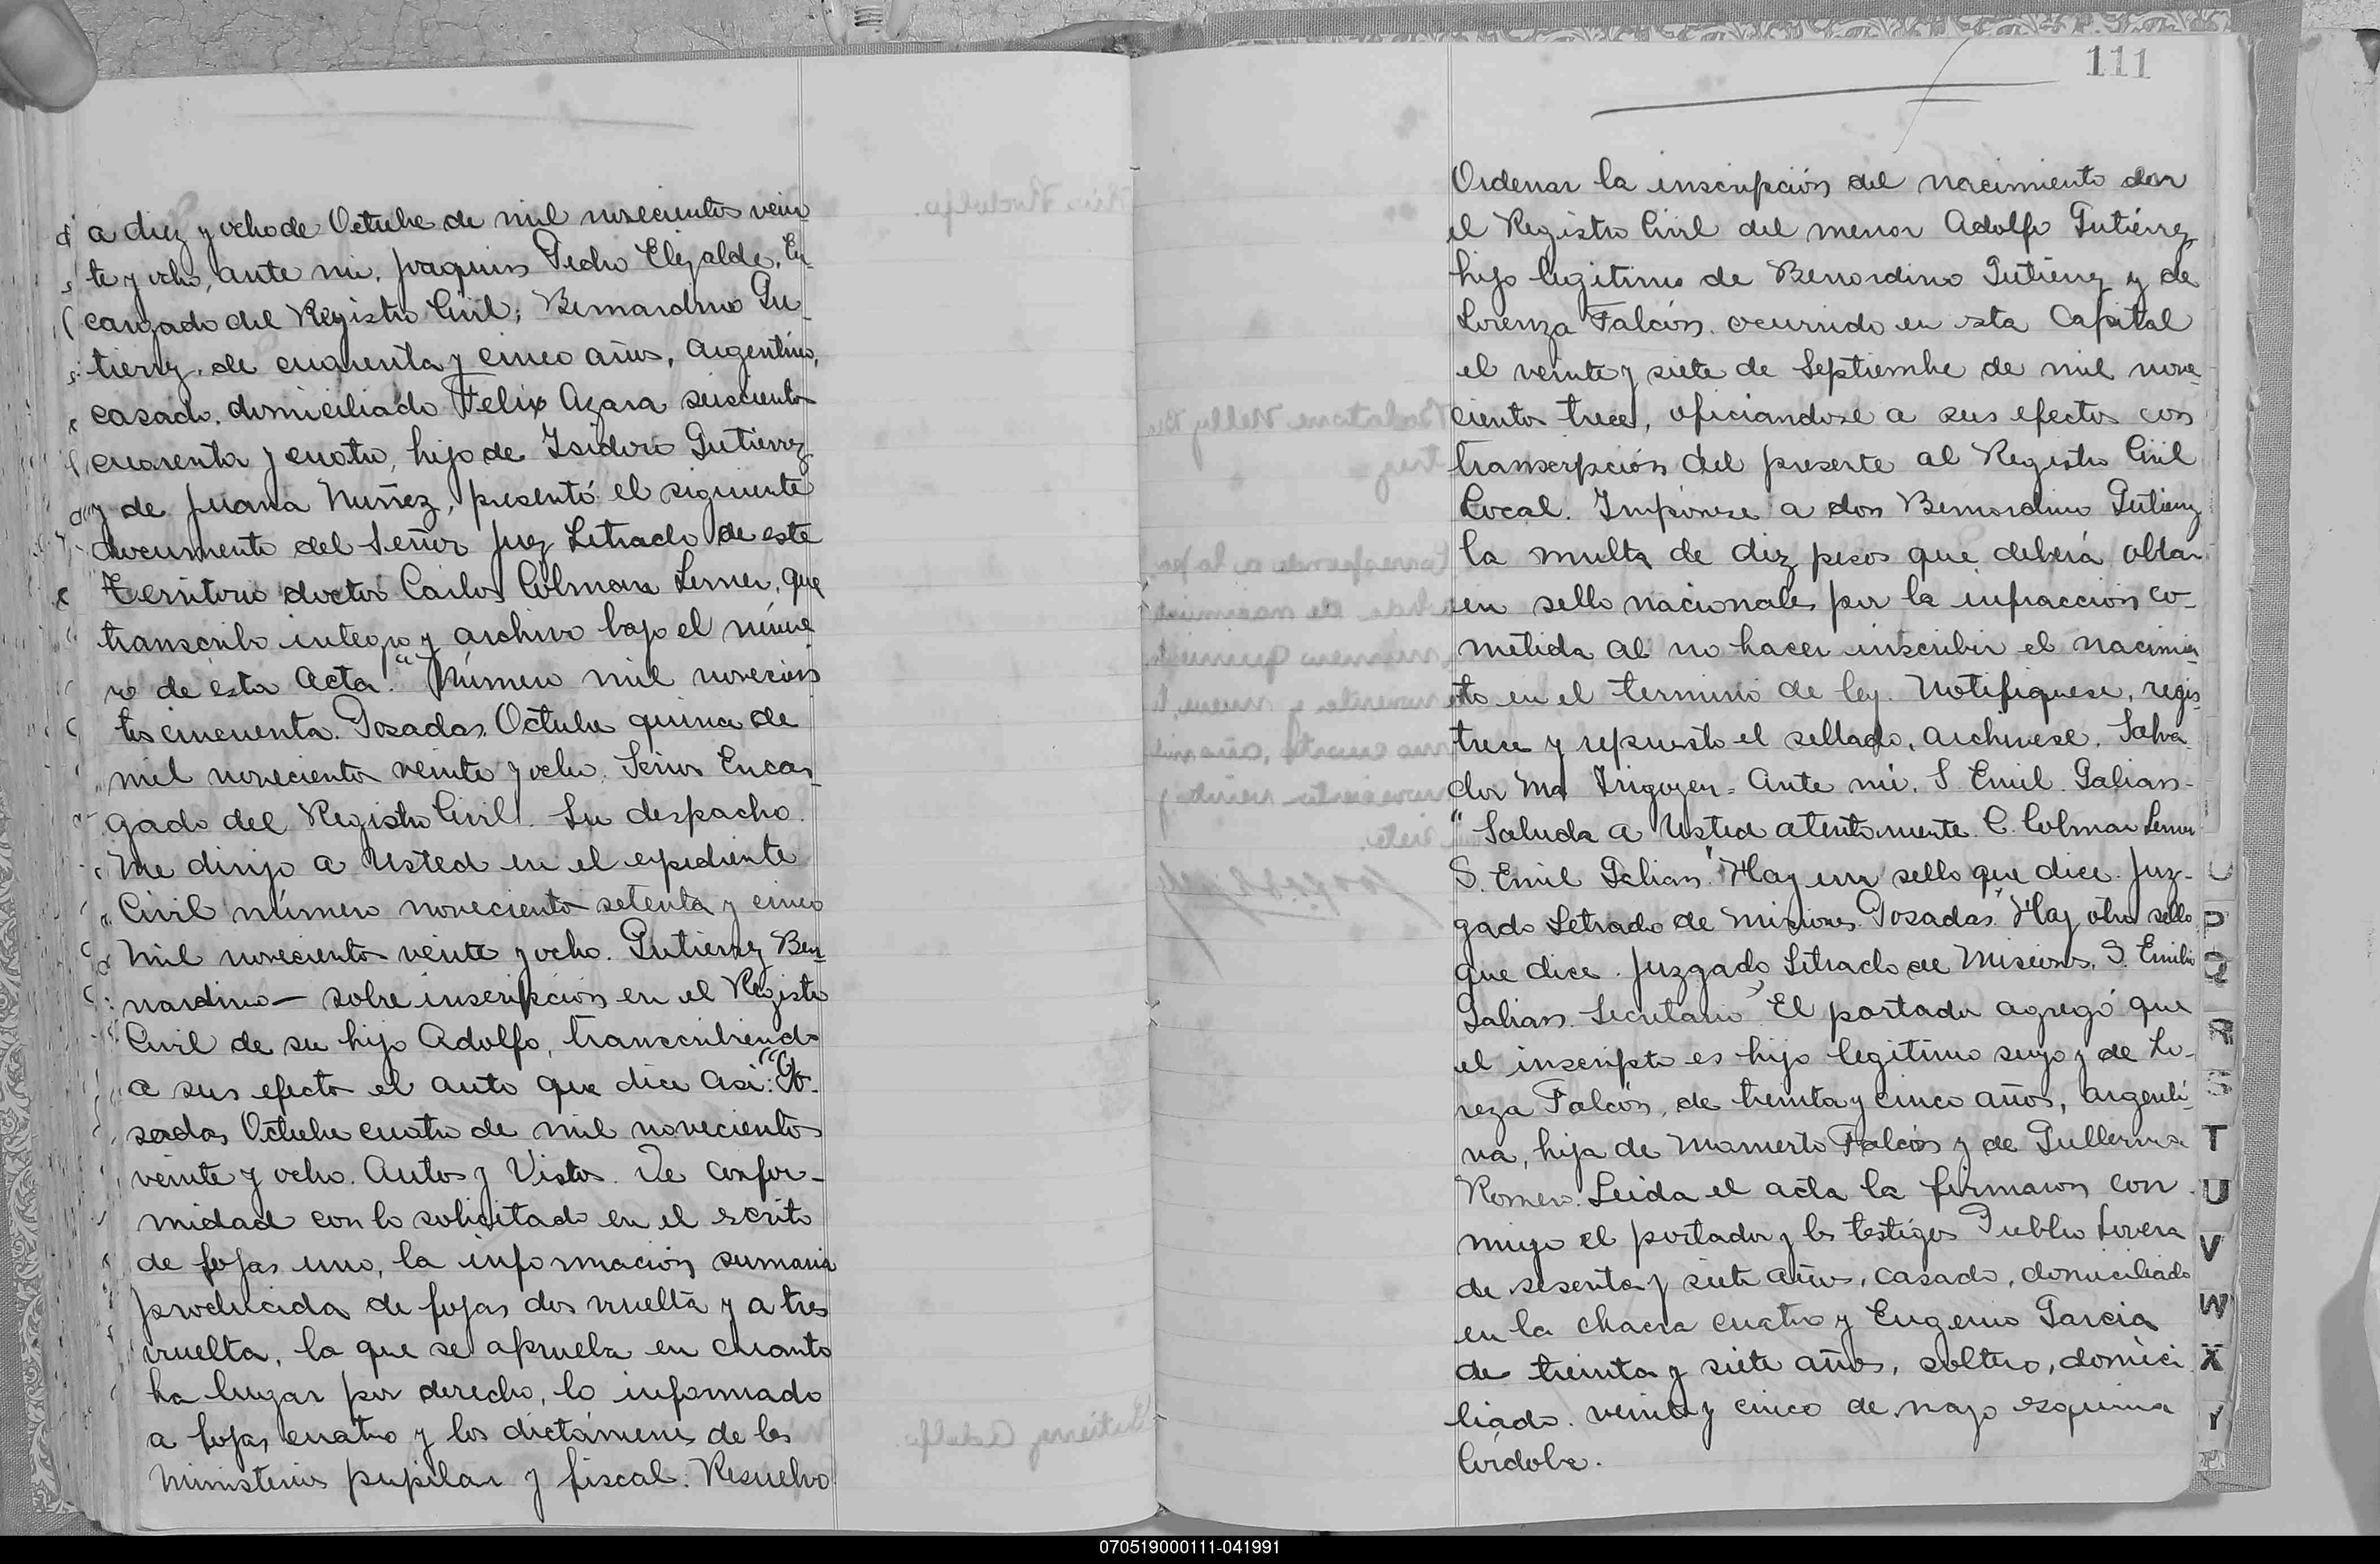 a diez y ocho de Octubre de mil novecientos vein
te y ocho, ante mi, Joaquin Pedro Elizalde, En-
cargado del Registro Civil; Bernardino Gu-
tierrez, de cuarenta y cinco años, Argentino,
casado, domiciliado Felix Azara seiscientos
cuarenta y cuatro, hijo de Isidoro Gutierrez
y de Juana Nuñez, presentó el siguiente
documento del Señor Juez Letrado de este
Territorio doctor Carlos Colman Lerner, que
transcribo integro y archivo bajo el núme
ro de esta Acta: "Número mil novecien
tos cincuenta. Posadas, Octubre quince de
mil novecientos veinte y ocho. Señor Encar-
gado del Registro Civil. Su despacho.
Me dirijo a Usted en el expediente
Civil número novecientos setenta y cinco
mil novecientos veinte y ocho. Gutierrez Ber-
nardino – sobre inscripción en el Registro
Civil de su hijo Adolfo, transcribiendo
a sus efectos el auto que dice así: "Po-
sadas Octubre cuatro de mil novecientos
veinte y ocho. Autos y Vistos. De confor-
midad con lo solicitado en el escrito
de fojas uno, la información sumaria
producida de fojas dos vuelta y a tres
vuelta, la que se aprueba en cuanto
ha lugar por derecho, lo informado
a fojas cuatro y los dictámenes de los
Ministerios pupilar y fiscal. Resuelvo
111
Ordenar la inscripción del nacimiento en
el Registro Civil del menor Adolfo Gutiérrez
hijo legitimo de Bernardino Gutierrez y de
Lorenza Falcón, ocurrido en esta Capital
el veinte y siete de Septiembre de mil nove-
cientos trece, oficiandose a sus efectos con
transcripción del presente al Registro Civil
Local. Impónese a don Bernardino Gutierrez
la multa de diez pesos que deberá oblar
en sello nacionales por la infracción co-
metida al no hacer inscribir el nacimien
to en el termino de ley. Notifiquese, regis-
trese y repuesto el sellado, archivese. Salva
dor Ma Irigoyen = Ante mi. S. Emil. Galian-
" Saluda a Usted atentamente. C. Colman Lerner
S. Emil Galian." Hay un sello que dice. Juz-
gado Letrado de Misiones. Posadas." Hay otro sello
que dice. Juzgado Letrado de Misiones, S. Emilio
Galian. Secretario" El portador agregó que
el inscripto es hijo legitimo suyo y de Lo-
reza Falcón, de treinta y cinco años, argenti-
na, hija de Mamerto Falcón y de Gullerma
Romero. Leida el acta la firmaron con
migo el portador y los testigos Publio Lovera
de sesenta y siete años, casado, domiciliado
en la chacra cuatro y Eugenio Garcia
de treinta y siete años, soltero, domici
liado. veinte y cinco de mayo esquina
Córdoba.
P
Q
R
S
T
U
V
W
X
Y
070519000111-041991